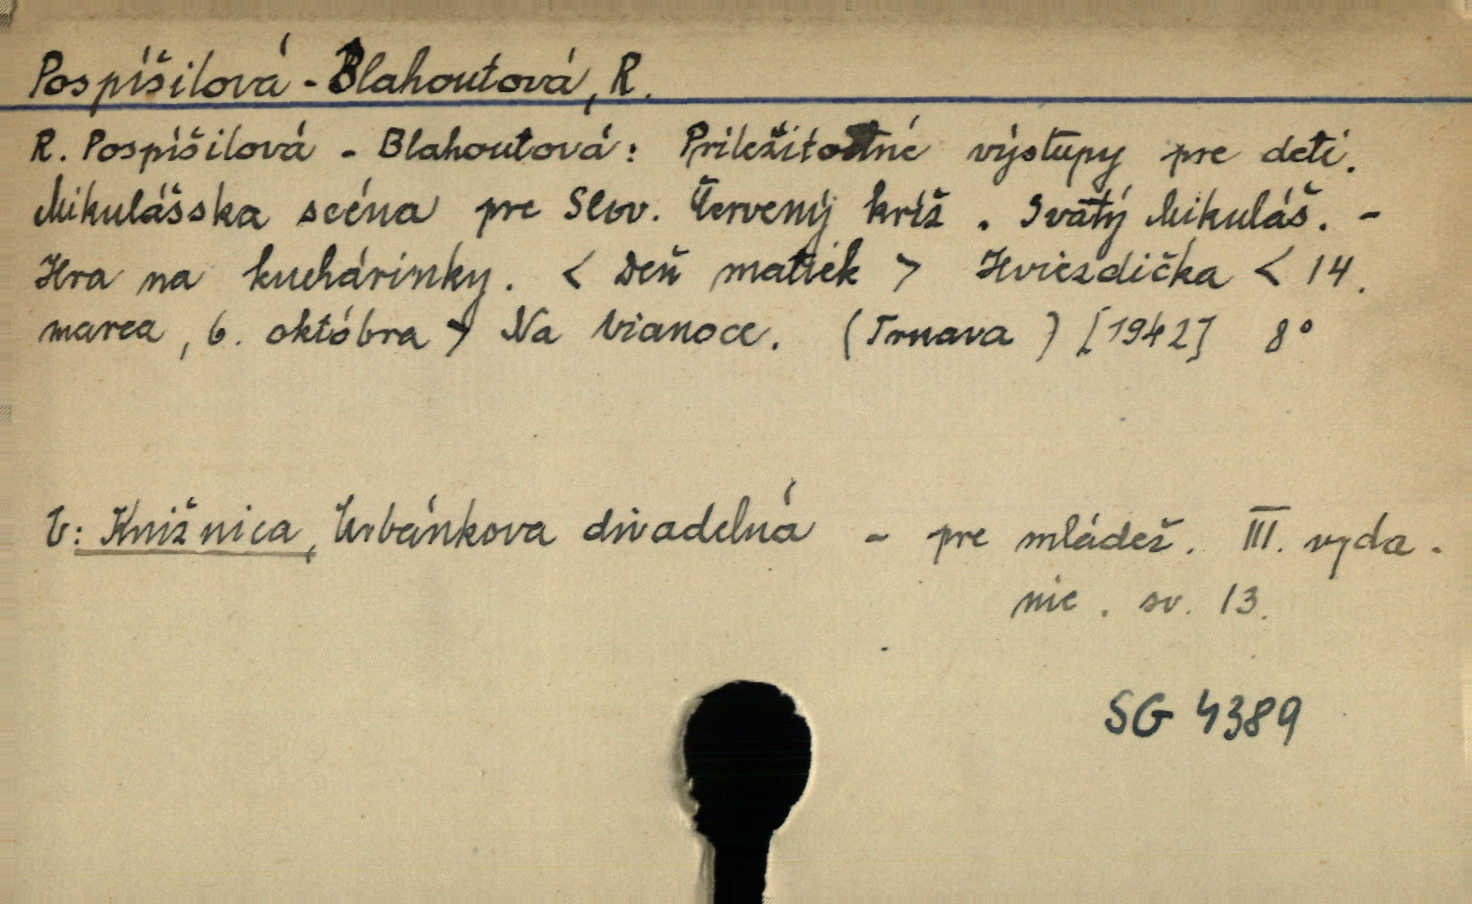 Pospíšilová - Blahoutová, R.
R. Pospíšilová - Blahoutová: Príležitostné výstupy pre deti.
Mikulášska scéna pre Slov. Červený kríž. Svätý Mikuláš. -
Hra na kuchárinky. < Deň matiek > Hviezdička < 14.
marca, 6. októbra > Na Vianoce. (Trnava) [1942] 8°
V: Knižnica, Urbánkova divadelná - pre mládež. III. vyda-
nie. sv. 13.
SG 4389